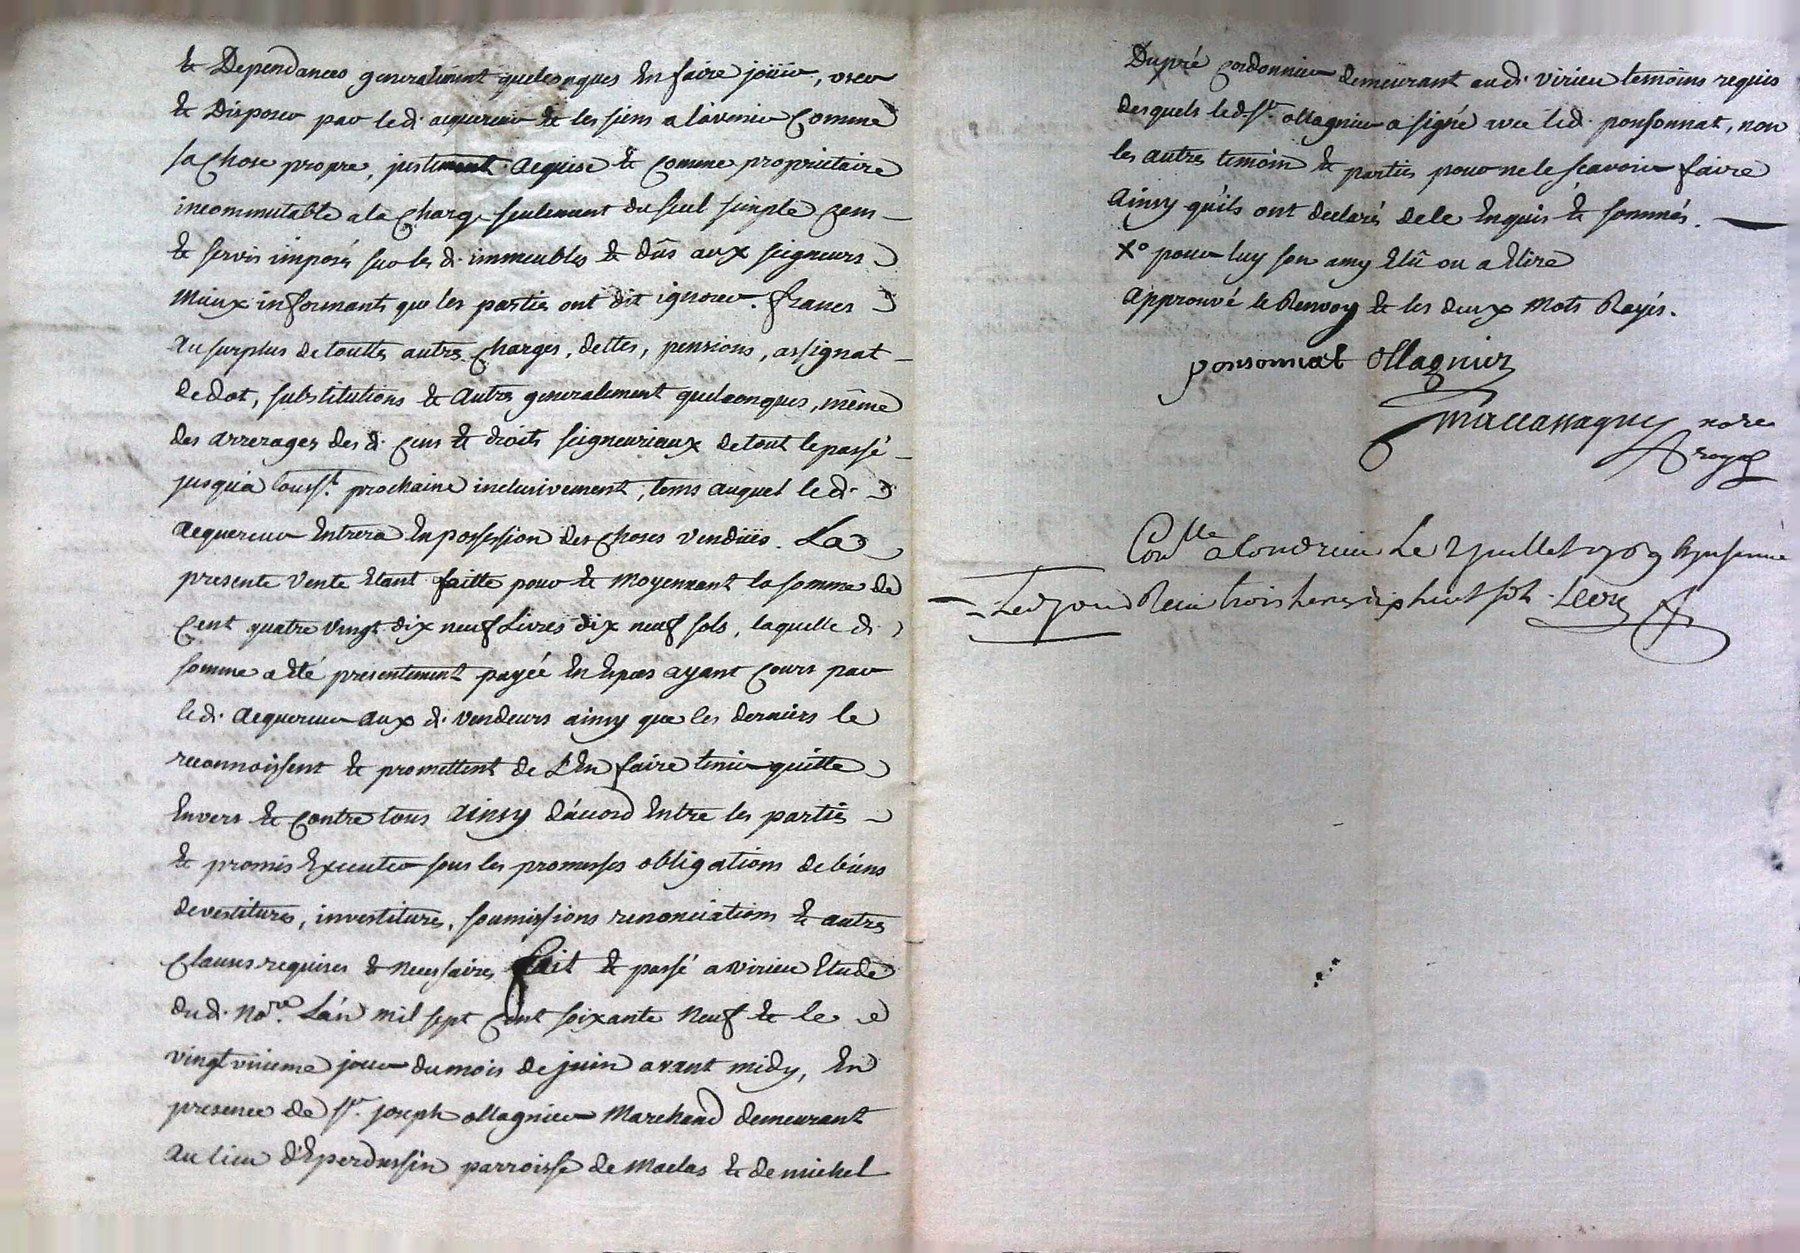 & Dependances generalement quelconques En faire joüir, user
& Disposer par led. acquereur & les siens a l'avenir Comme
sa Chose propre, justement acquise & Comme proprietaire
incommutable a la Charge seulement du seul simple Cens
& servis imposés sur les d. immeubles & dûs aux seigneurs
mieux informants que les parties ont dit ignorer. francs
au surplus de touttes autres Charges, dettes, pensions, assignat
de dot, substitutions & autres generalement quelconques, même
des arrerages des d. Cens & droits seigneuriaux de tout le passé
jusqu'a Touss.t prochaine inclusivement, tems auquel le d.
acquereur Entrera En possession des Choses Vendües. La
presente Vente Etant faitte pour & Moyennant la somme de
Cent quatre Vingt dix neuf Livres dix neuf sols, laquelle d.
somme a Eté presentement payée En Espèces ayant Cours par
le d. acquereur aux d. Vendeurs ainsy que les derniers le
reconnoissent & promettent de L'En faire tenir quitte
Envers & Contre tous ainsy d'accord Entre les parties
& promis Executer sous les promesses obligations de biens
devestitures, investitures, soumissions renonciations & autres
Clauses requises & Necessaires fait & passé a Virieu Etude
du d. No.re L'an mil sept Cent soixante Neuf & le
vingt jour du mois de juin avant midy, En
presence de Sr. joseph ollagnier Marchand demeurant
au lieu d'Eperdussin parroisse de Maclas & de michel
Dupré Cordonnier demeurant aud. Virieu temoins requis
desquels led. Sr. ollagnier a signé avec led. ponsonnat, non
les autres temoin & parties pour ne le scavoir faire
ainsy qu'ils ont declarés de ce Enquis & sommés.
X° pour luy son amy Elû ou a Elire
approuvé le Renvoy & les deux Mots Rayés.
ponsonnat ollagnier
nore
royal
Con.lle a Condrieu Le 2 juillet 1769
Reçu trois livres dix huit sols